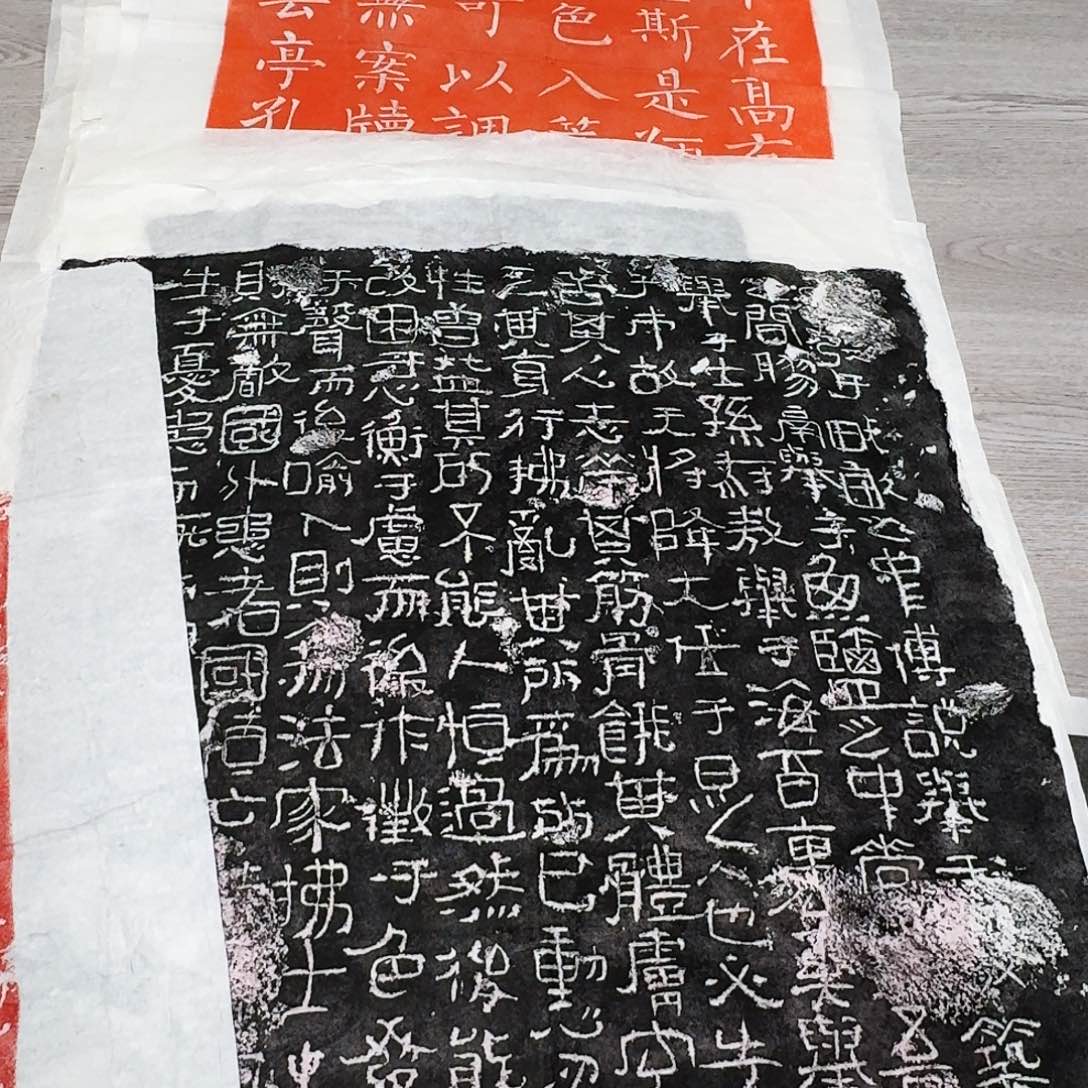 在高
斯是陋
色入
可以調
無案牘
亭孔
于畎畝之中傅說舉于築
間膠鬲舉于魚鹽之中管吾
舉于士孫叔敖舉于海百里奚舉
于市故天將降大任于是人也必先
苦其心志勞其筋骨餓其體膚空
乏其身行拂亂其所為所以動心忍
性曾益其所不能人恒過然後能
改困于心衡于慮而後作徵于色發
于聲而後喻入則無法家拂士出
則無敵國外患者國恒亡
生于憂患而死